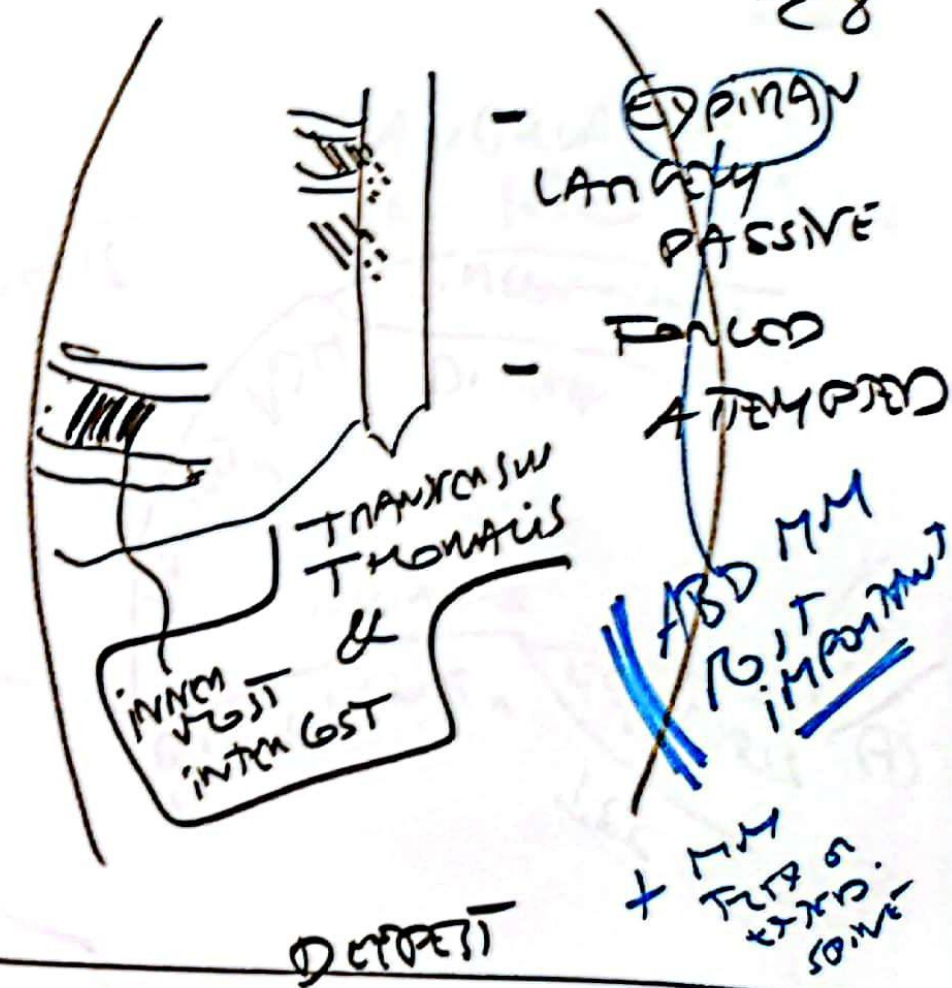 C8
- EXPIRAN
LARGELY
PASSIVE
- FORCED
ATTEMPTED
TRANSVERSUS
THORACIS
&
INNER
MOST
INTERCOST
ABD MM
MOST
IMPORTANT
+ MM
FLEX OR
EXTEND.
SPINE
DEEPEST